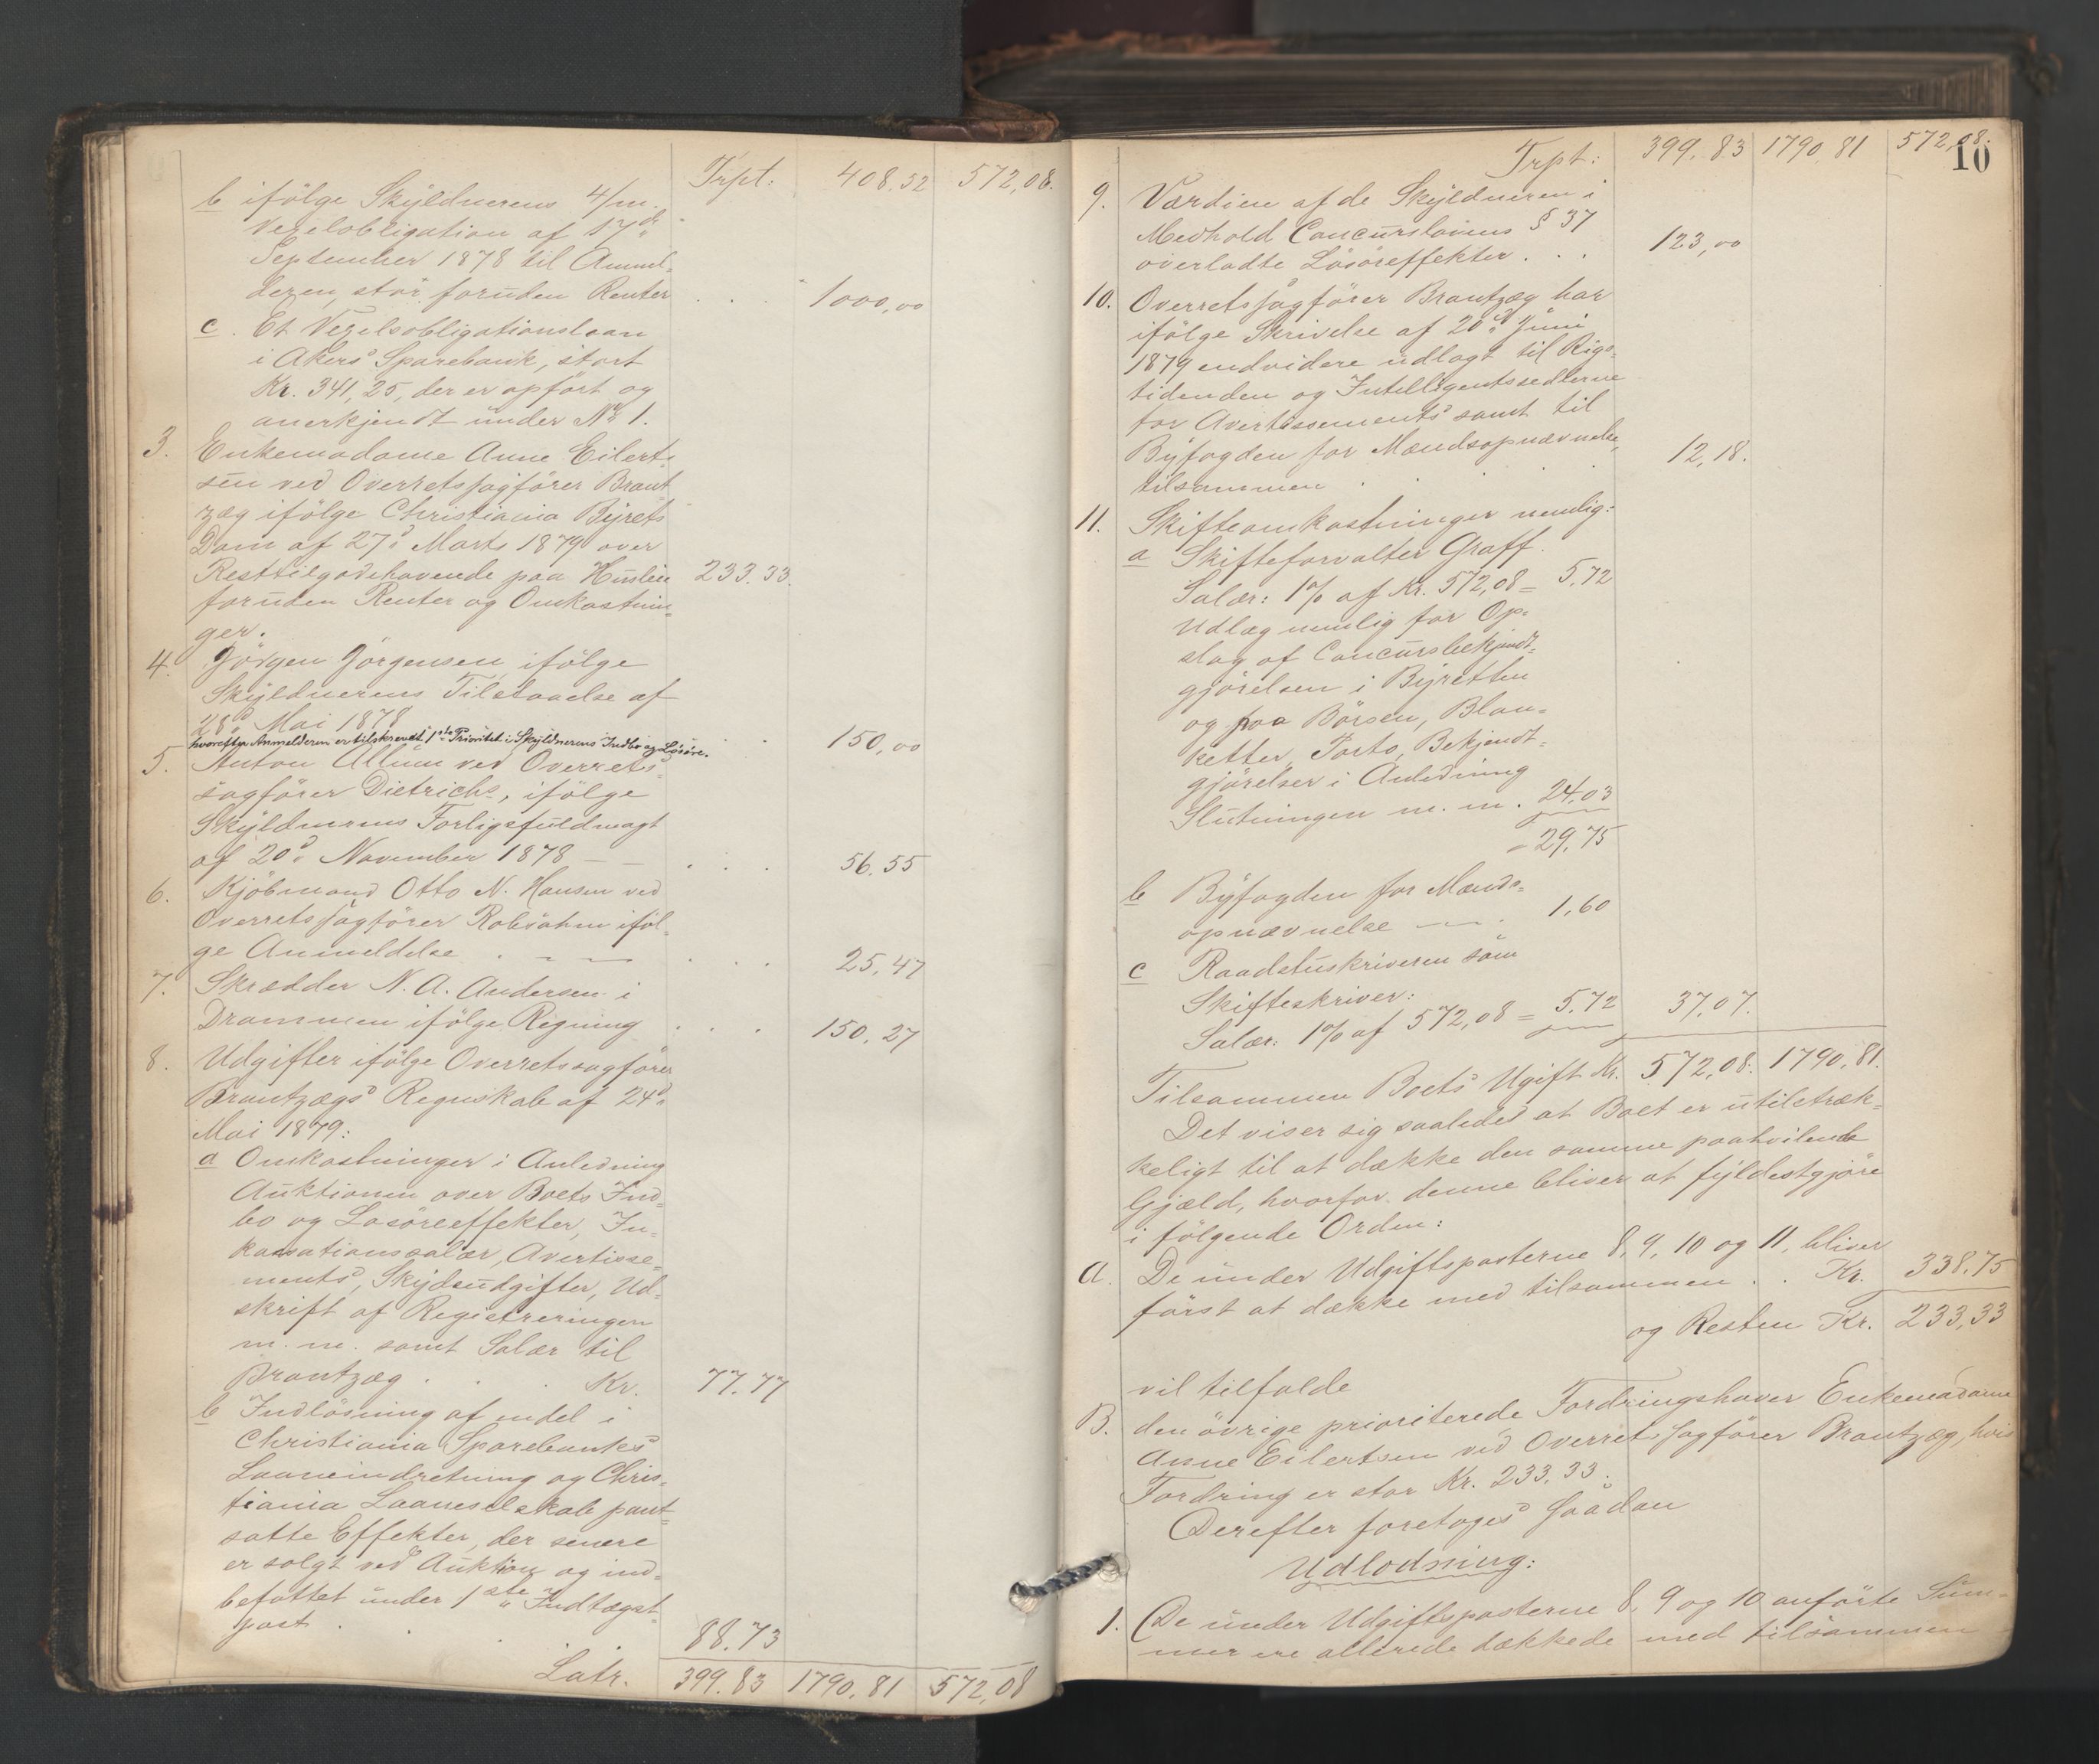 Trpt: 408.52 572,08.
b ifölge Skyldnerens 4/m.
Vexelobligation af 17de
September 1878 til Anmel-
deren, stor foruden Renter . . . 1000,00
c. Et Vexelsobligationslaan
i Akers Sparebank, stort
Kr. 341,25, der er opfört og
anerkjendt under No 1.
3. Enkemadame Anne Eilert-
sen ved Overretssagförer Brant-
zæg ifölge Christiania Byrets
Dom af 27d. Marts 1879 over
Resttilgodehavende paa Husleie 233.33.
foruden Renter og Omkostnin-
ger.
4. Jörgen Jörgensen, ifölge
Skyldnerens Tilstaaelse af
28d. Mai 1878
hvorefter Anmelderen er tilskrevet 1ste Prioritet i Skyldnerens Indbo og Lösöre. . . 150,00
5. Anton Allum ved Overrets-
sagförer Dietrichs, ifölge
Skyldnerens Forligsfuldmagt
af 20d. November 1878 — — . . . 56.55
6. Kjöbmand Otto N. Hansen ved
Overretssagförer Robsahm iföl-
ge Anmeldelse . — — . . . 25,47
7. Skrædder N. A. Andersen i
Drammen ifölge Regning . . . 150.27
8. Udgifter ifölge Overretssagförer
Brantzægs Regnskab af 24d.
Mai 1879:
a Omkostninger i Anledning
Auktionen over Boets Ind-
bo og Lösöreeffekter, In-
kassationssalær, Avertisse-
ments, Skydsudgifter, Ud-
skrift af Registreringen
m. m. samt Salær til
Brantzæg . . . Kr. 77.77
b Indlösning af endel i
Christiania Sparebanks
Laaneindretning og Chris-
tiania Laaneselskab pant-
satte Effekter, der senere
er solgt ved Auktion og ind-
befattet under 1ste Indtægst-
post . . . 88.73
Latr. 399.83 1790.81 572,08
10
Trpt: 399.83 1790.81 572,08.
9. Værdien af de Skyldneren i
Medhold Concurslovens § 37
overladte Lösöreffekter . . . 123,00
10. Overretssagförer Brantzæg har
ifölge Skrivelse af 20d. Juni
1879 endvidere udlagt til Rigs-
tidenden og Intelligentssedlerne
for Avertissements samt til
Byfogden for Mændsopnævnelse,
tilsammen . . . 12,18.
11. Skifteomkostninger nemlig:
a Skifteforvalter Graff.
Salær: 1% af Kr. 572,08 = 5,72
Udlæg nemlig for Op-
slag af Concursbekjendt-
gjörelsen i Byretten
og paa Börsen, Blan-
ketter, Porto, Bekjendt-
gjörelser i Anledning
Slutningen m. m. . 24,03
= 29,75
b Byfogden for Mænds-
opnævnelse — . 1,60
c Raadstuskriveren som
Skifteskriver:
Salær: 1% af 572,08 = 5.72 37,07.
Tilsammen Boets Ugift Kr. 572,08. 1790,81.
Det viser sig saaledes at Boet er utilstræk-
keligt til at dække den samme paahvilende
Gjæld, hvorfor denne bliver at fyldestgjöre
i fölgende Orden:
A. De under Udgiftsposterne 8, 9, 10 og 11, bliver
först at dække med tilsammen . . Kr. 338.75
og Resten Kr. 233,33
vil tilfalde
B. den övrige prioriterede Fordringshaver Enkemadame
Anne Eilertsen ved Overretssagförer Brantzæg, hvis
Fordring er stor Kr. 233.33.
Derefter foretoges saadan
Udlodning:
1. De under Udgiftsposterne 8, 9 og 10 anförte Sum-
mer ere allerede dækkede med tilsammen